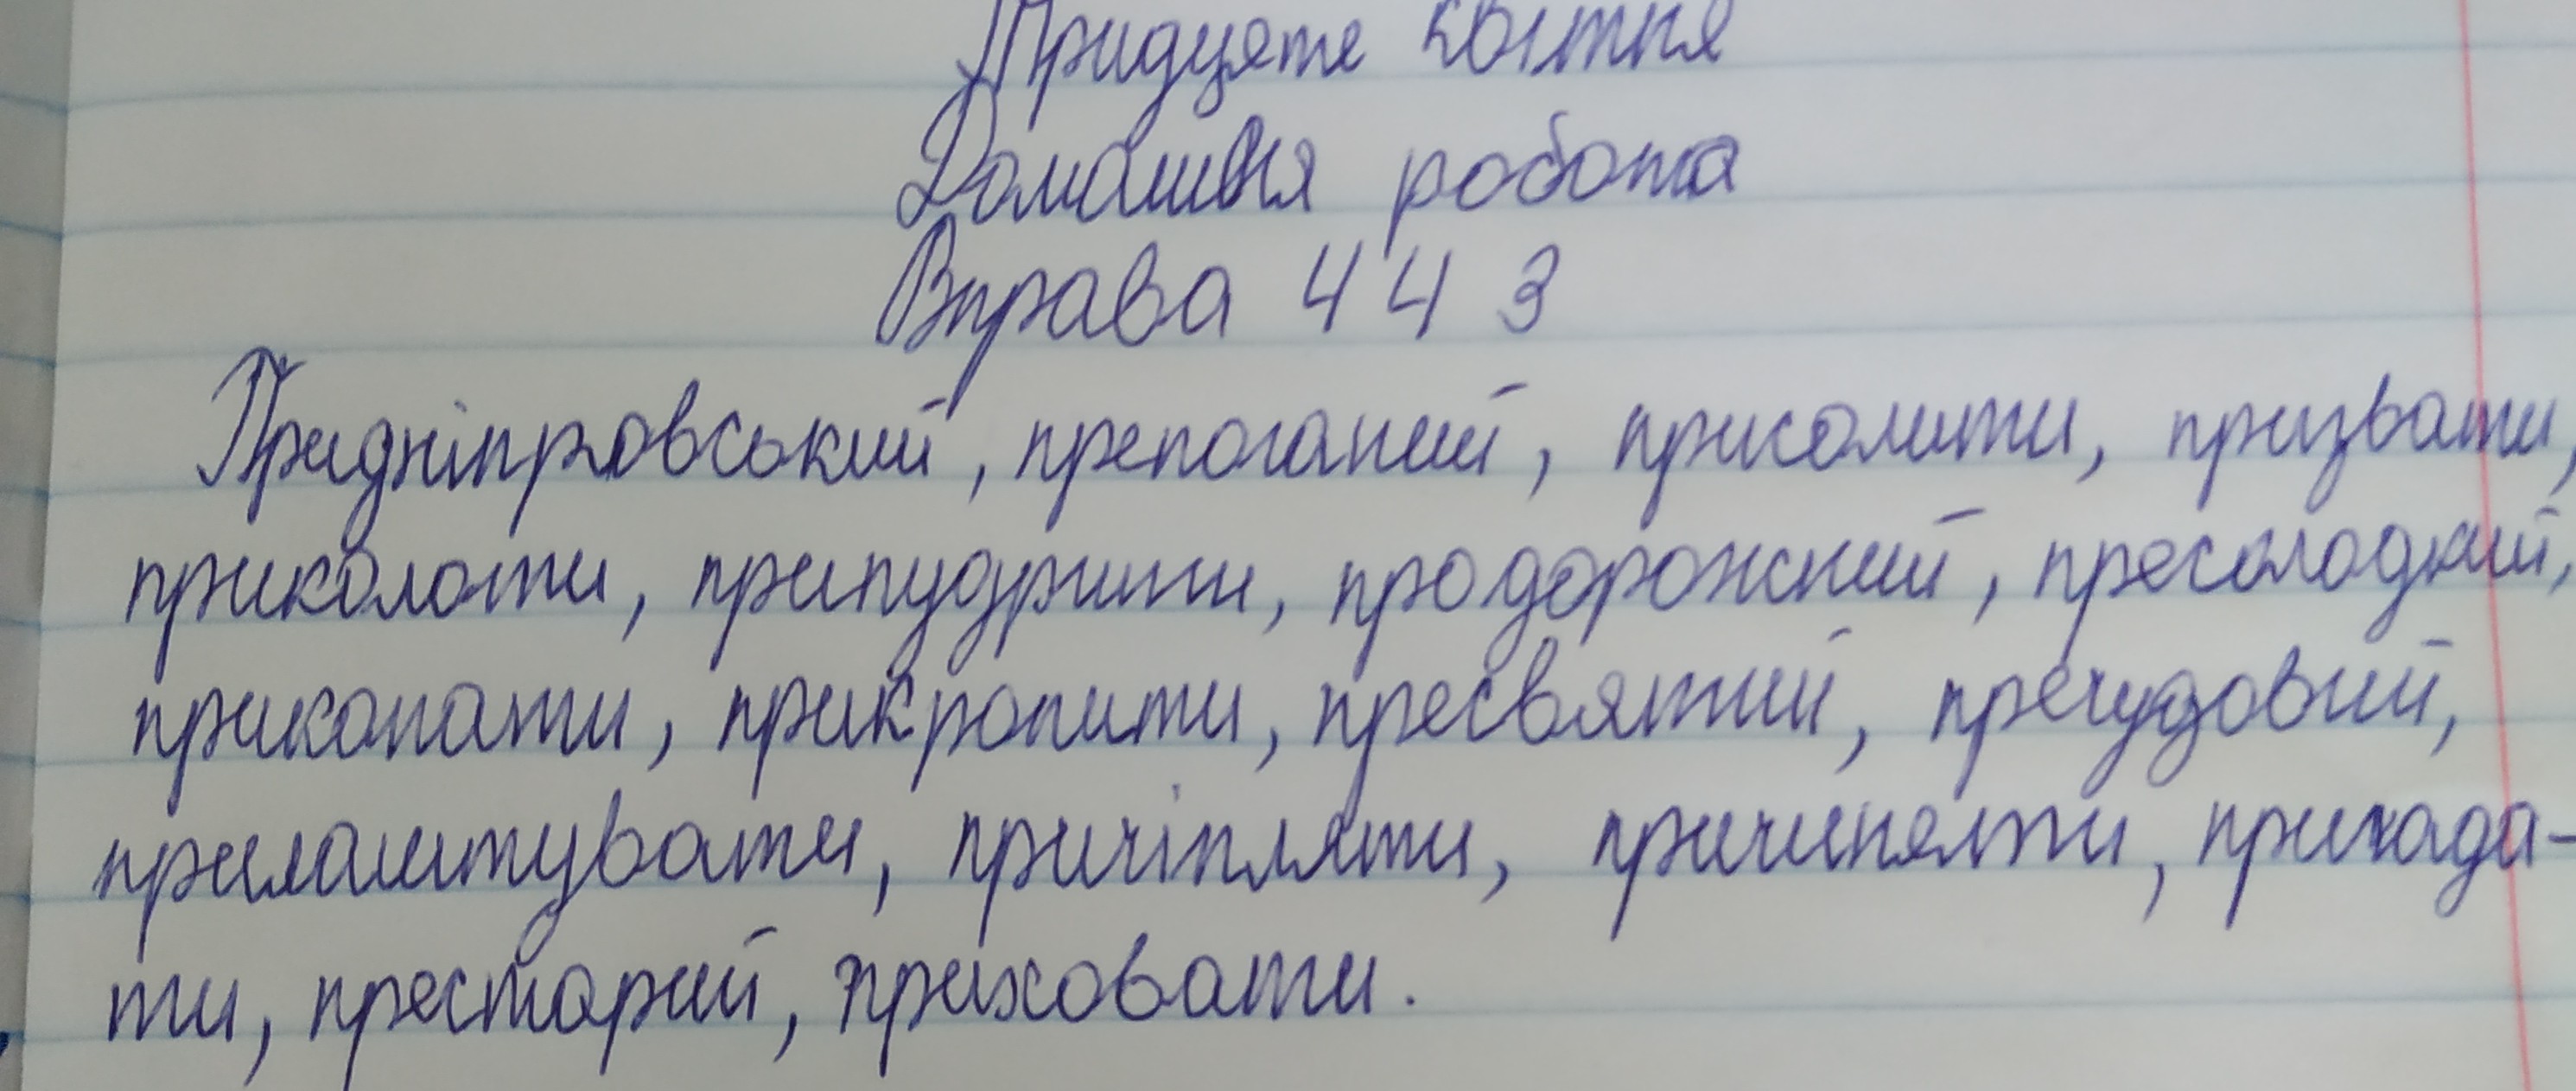 Тридцяте квітня
Домашня робота
Вправа 443
Придніпровський, препоганий, присолити, призвати,
приколоти, припудрити, продорожний, пресолодкий,
прикопати, прикропити, пресвятий, пречудовий,
прилаштувати, причіпляти, причиняти, пригада-
ти, престарий, приховати.